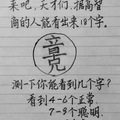 来吧,天才们,据高智
商的人能看出来18个字。
竞
测一下你能看到几个字?
看到4-6个正常
7-9个聪明